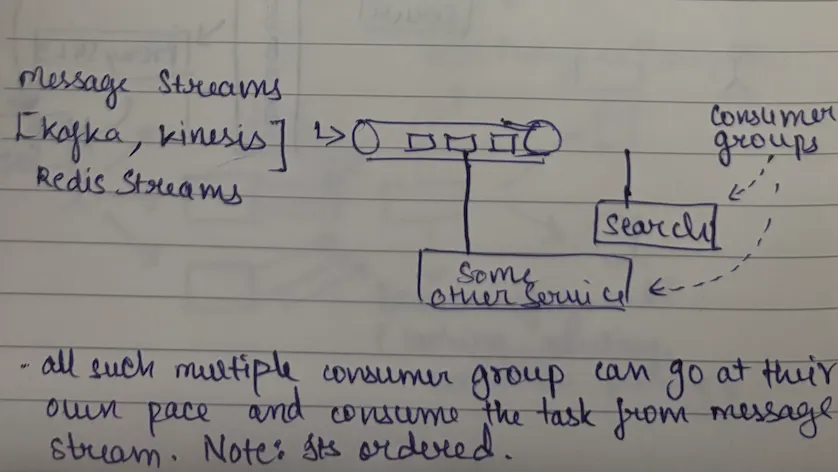 Message Streams
[Kafka, Kinesis]
Redis Streams
Consumer
groups
Search
Some
other Service
- all such multiple consumer group can go at their
own pace and consume the task from message
stream. Note: Its ordered.